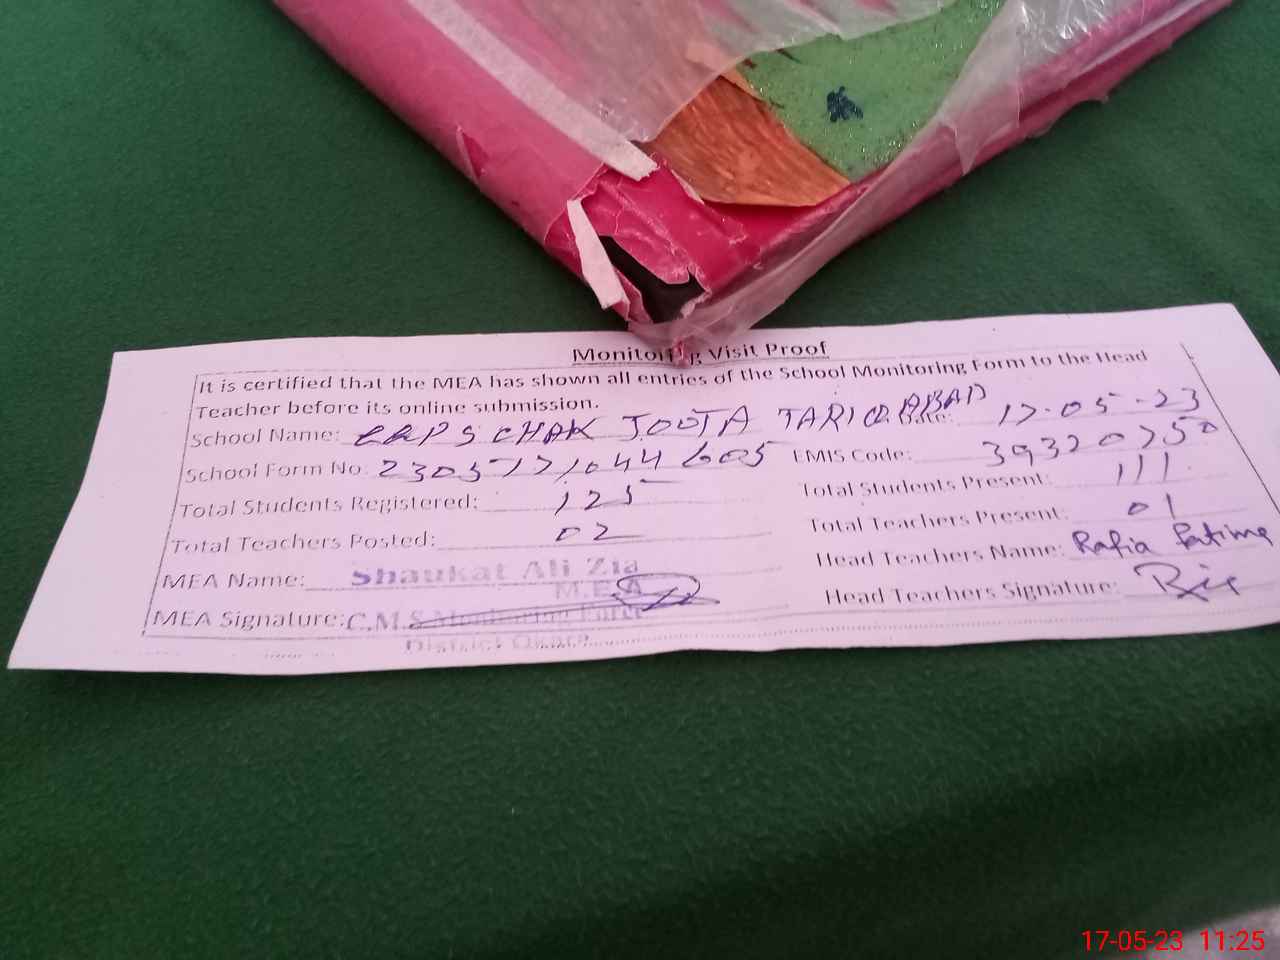 Monitoring Visit Proof
It is certified that the MEA has shown all entries of the School Monitoring Form to the Head
Teacher before its online submission.
School Name: GGPS CHAK JOOTA TARIQ ABAD Date: 17-05-23
School Form No: 2305171044605 EMIS Code: 39320750
Total Students Registered: 125 Total Students Present: 111
Total Teachers Posted: 02 Total Teachers Present: 01
MEA Name: Shaukat Ali Zia Head Teachers Name: Rafia Fatima
M.E.A
MEA Signature: C.M.S Monitoring Force Head Teachers Signature:
District Okara
17-05-23 11:25